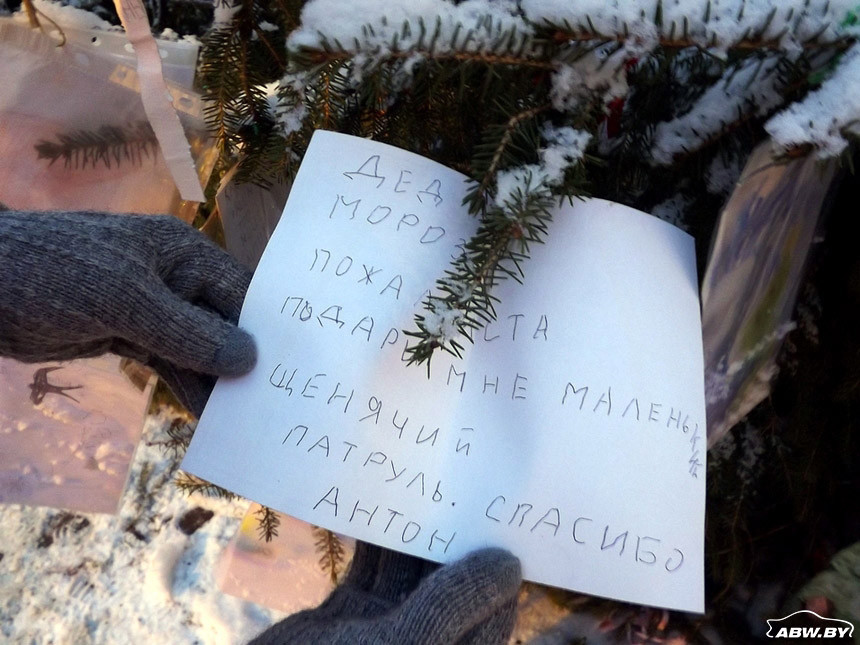 ДЕД
МОРОЗ
ПОЖАЛУЙСТА
ПОДАРИ МНЕ МАЛЕНЬКИЙ
ЩЕНЯЧИЙ
ПАТРУЛЬ. СПАСИБО
АНТОН
ABW.BY